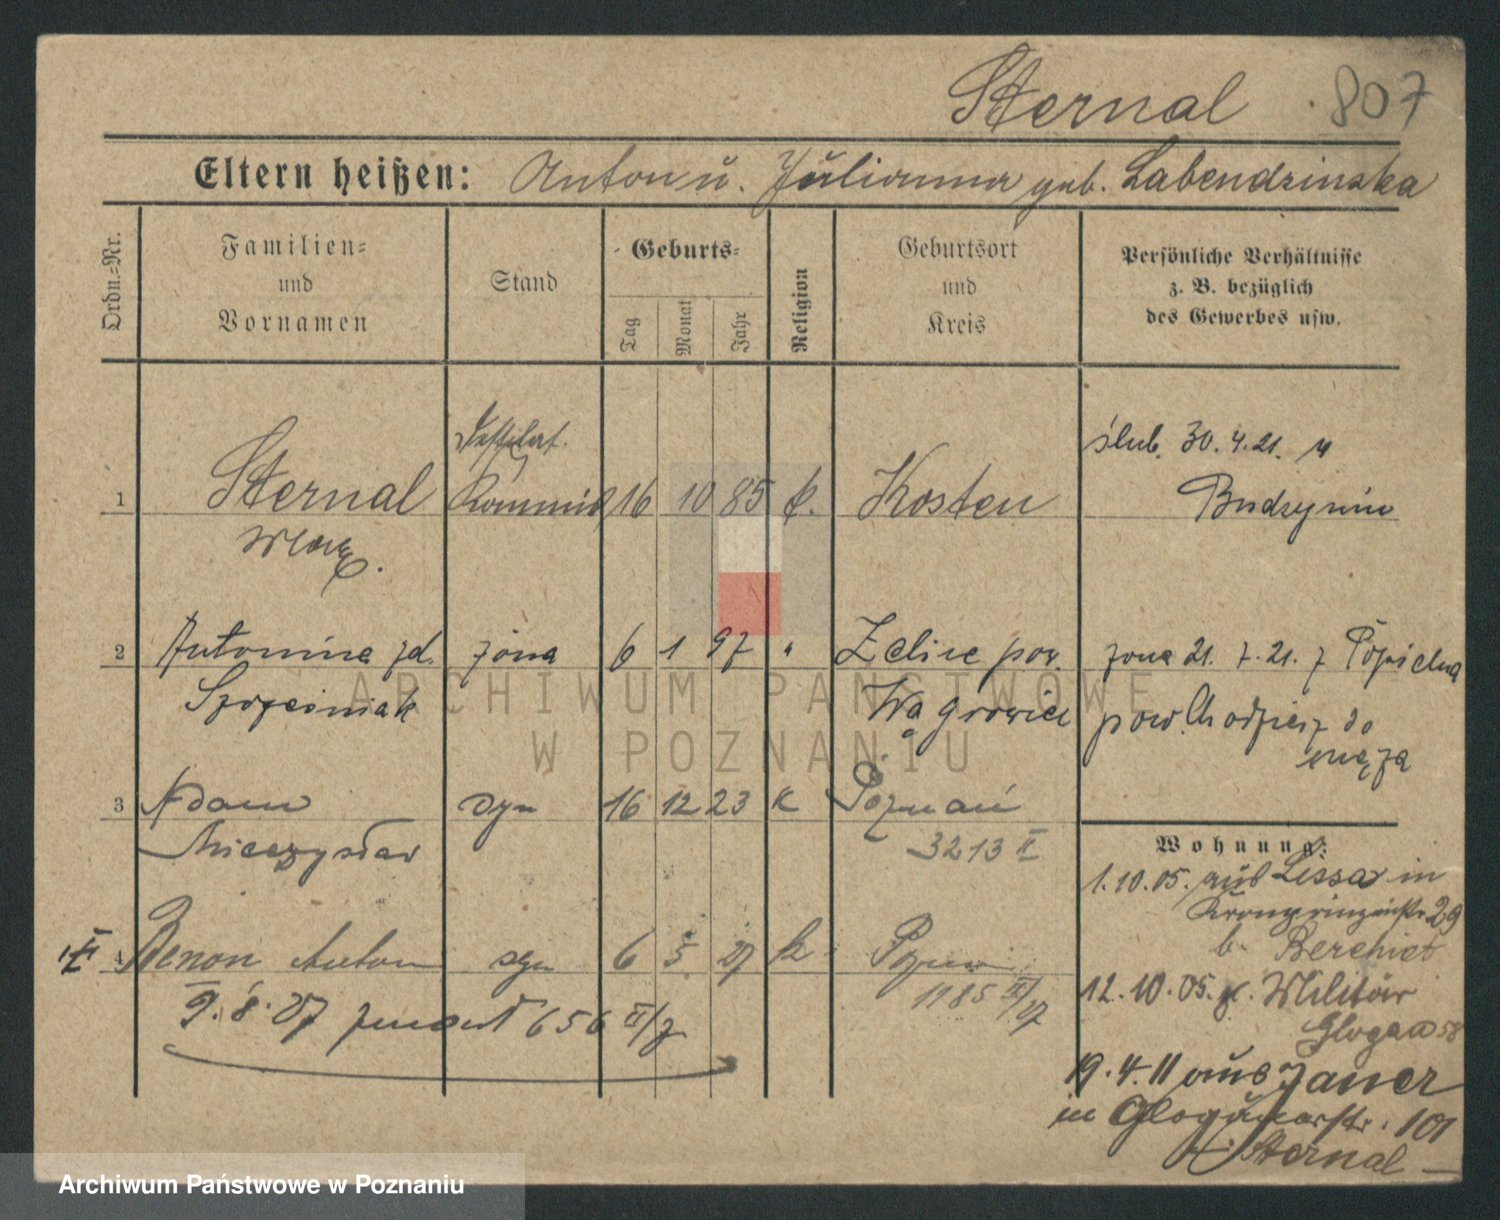 Sternal 807
Eltern heißen: Anton u. Julianna geb. Labendzinska
Ordn.-Nr.
Familien-
und
Vornamen
Stand
Geburts-
Tag
Monat
Jahr
Religion
Geburtsort
und
Kreis
Persönliche Verhältnisse
z. B. bezüglich
des Gewerbes usw.
1 Sternal 16 10 85 k. Kosten
ślub. 30.4.21. w
Budzyniu
2 Antonina zd. żona 6 1 97 " Zelice pow.
Wągrowiec
żona 21. 7. 21. z
pow. Chodzież do
męża
3 Adam syn 16 12 23 k Poznań
Mieczysław 3213 II
4 Benon Anton syn 6 5 27 k
1185 II/27
9.8.27 656 II/7
Wohnung:
1.10.05. aus Lissa in
Kronprinzenstr 29
b.
12.10.05. z. Militär
Glogau 58
19.4.11 aus Jauer
in Glogauerstr. 101
b. Sternal
ARCHIWUM PAŃSTWOWE
W POZNANIU
Archiwum Państwowe w Poznaniu